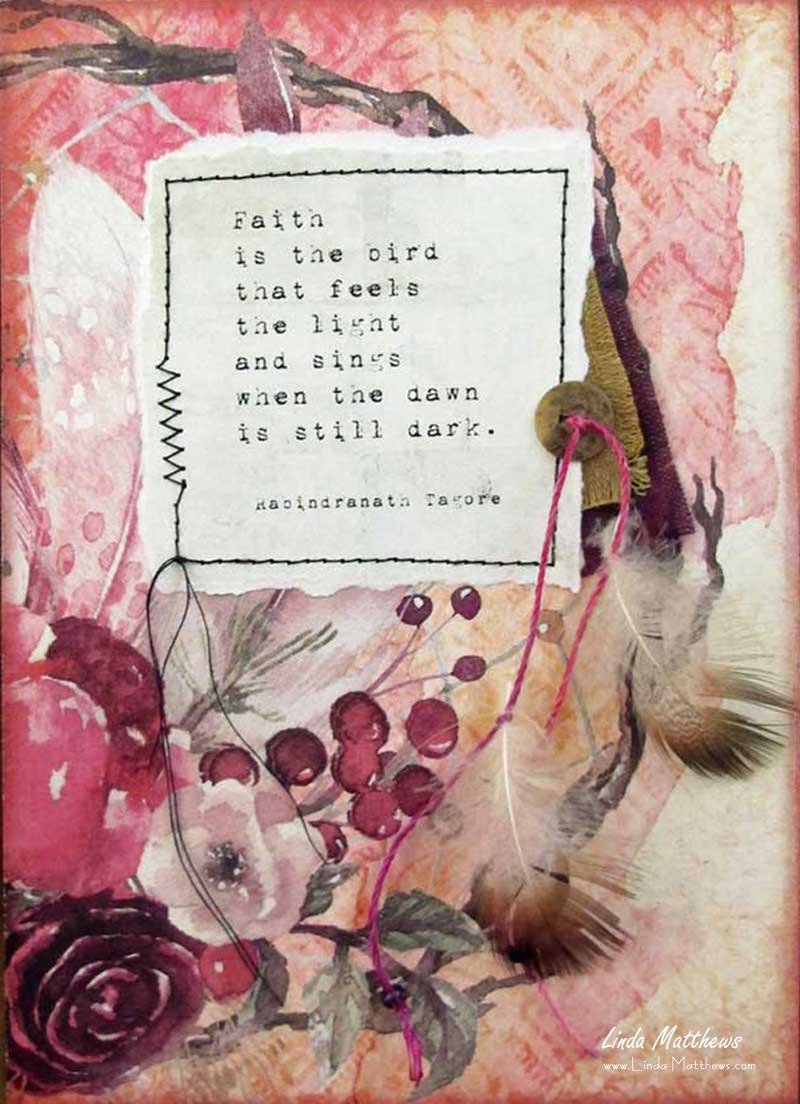 Faith
is the bird
that feels
the light
and sings
when the dawn
is still dark.
Rabindranath Tagore
Linda Matthews
www.Linda-Matthews.com